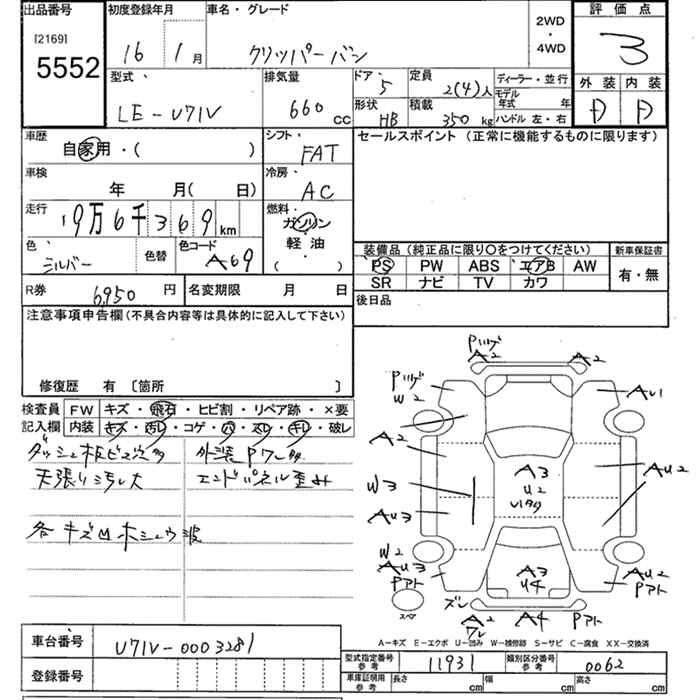 出品番号 初度登録年月 車名・グレード 2WD・4WD 評価点
[2169] 5552 16年1月 クリッパーバン 3
型式 排気量 ドア・ 定員 ディーラー・並行 外装 内装
LE-U71V 660cc 5 2(4)人 モデル年式 年 A A
形状 HB 積載 350kg ハンドル 左・右
車歴 シフト・ セールスポイント(正常に機能するものに限ります)
自家用・( ) FAT
車検 冷房・
年 月( 日) AC
走行 燃料・
19万6千369km ガソリン
色・ 色替 色コード 軽油・ 装備品(純正品に限り〇をつけてください) 新車保証書
シルバー A69 ( ) PS PW ABS エアB AW 有・無
SR ナビ TV カワ
R券 6,950円 名変期限 月 日 後日品
注意事項申告欄(不具合内容等は具体的に記入して下さい)
修復歴 有〔箇所 〕
検査員 FW キズ・飛石・ヒビ割・リペア跡・×要
記入欄 内装 キズ・汚レ・コゲ・パ・スレ・キレ・破レ
ダッシュ板ビス穴多 外装Pワレ多
天張り汚レ大 エンドパネル歪み
各キズ凹ホシュウ波
Pツゲ
A2 A2
Pツゲ W2 AU1
A2
A3 U2 Uタタ AU2
W3
AU3
W2 AU3 Pアト A3 U4 AU2 Pアト
ズレ A2 ワレ A4 Pアト
スペア
A-キズ E-エクボ U-凹み W-補修跡 S-サビ C-腐食 XX-交換済
車台番号 U71V-0003281 型式指定番号 参考 11931 類別区分番号 参考 0062
登録番号 車庫証明用 参考 長さ cm 幅 cm 高さ cm